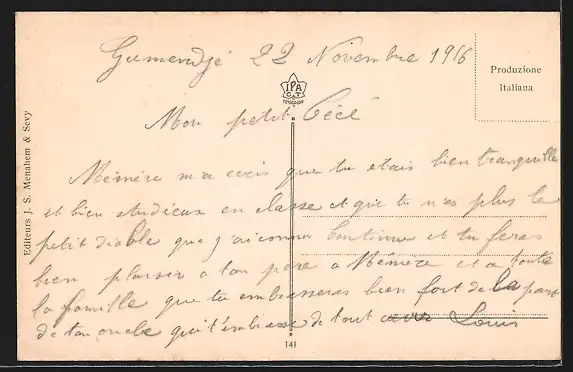 Gumendjé 22 Novembre 1916
Produzione
Italiana
IPA
CT
Mon petit Cécé
Editeurs J. S. Menahem & Sevy
Mémère m'a ecris que tu etais bien tranquille
et bien studieux en classe et que tu n'es plus le
petit diable que j'ai connu Continue et tu feras
bien plaisir a ton père a Mémère et a toute
la famille que tu embrasseras bien fort de la part
de ton oncle qui t'embrasse de tout Louis
[4]